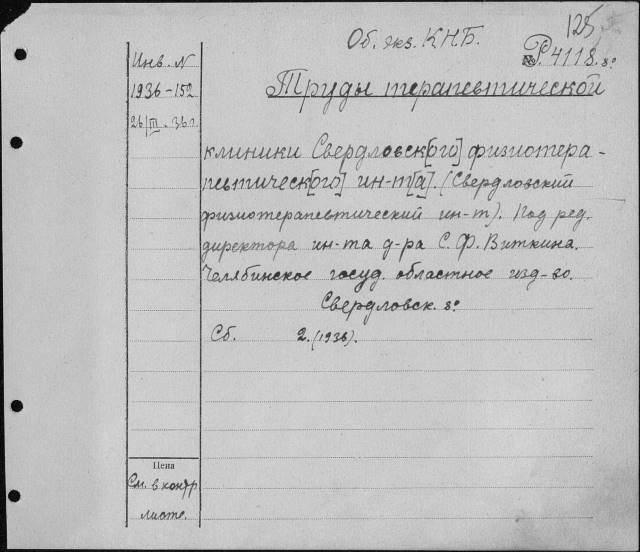 125
Об. экз. КНБ.
Р. 4118. 8º
Инв. N
1936-152
26/III. 36 г
Труды терапевтической
клиники Свердловск[ого] физиотера-
певтическ[ого] ин-т[а]. (Свердловский
физиотерапевтический ин-т). Под ред.
директора ин-та д-ра С. Ф. Виткина.
Челябинское госуд. областное изд-во.
Свердловск. 8º
Сб. 2. (1936).
Цена
См. в контр
листе.